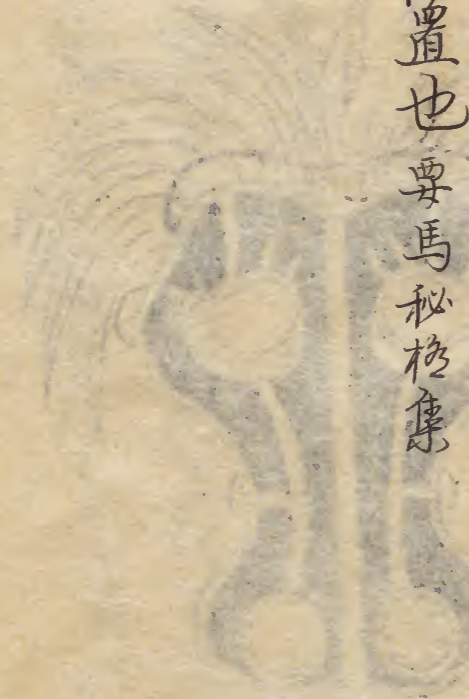 置也要馬秘格集